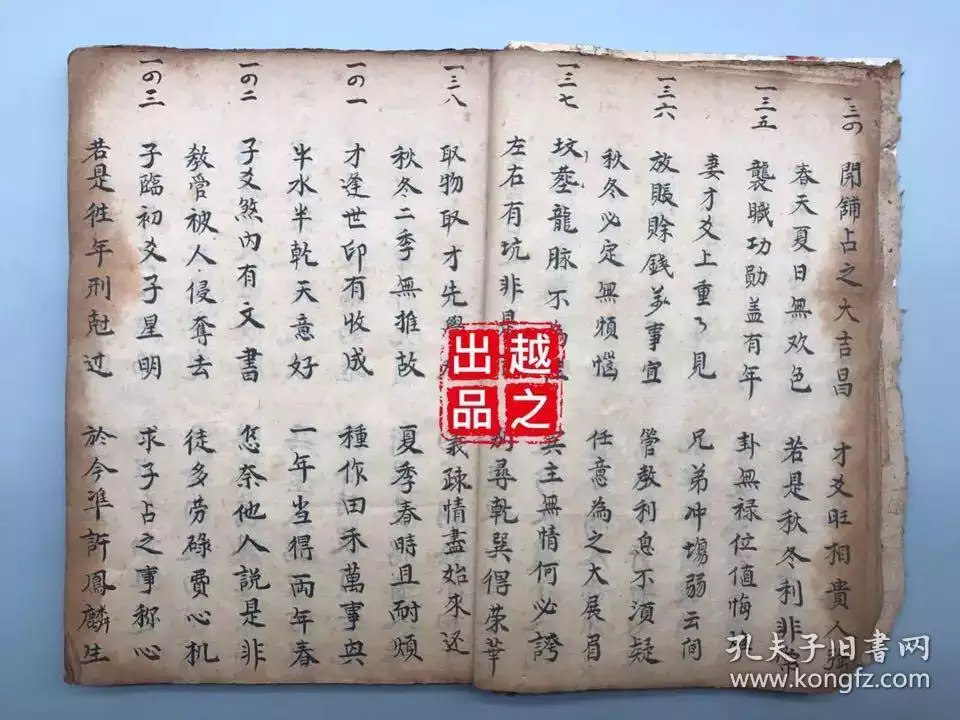 一三の
開舖占之大吉昌 才爻旺相貴人強
春天夏日無欢色 若是秋冬利非常
一三五
襲職功勋盖有年 卦無禄位值悔
妻才爻上重々見 兄弟冲塲弱云间
一三六
放賬賒錢美事宜 管教利息不須疑
秋冬必定無煩惱 任意為之大展眉
一三七
坟塋龍脉不 主無情何必誇
左右有坑非是 别尋乾巽得荣華
一三八
取物取才先 義疎情盡始來还
秋冬二季無推故 夏季春時且耐煩
一の一
才逢世印有收成 種作田禾萬事興
半水半乾天意好 一年当得両年春
一の二
子爻煞内有文書 怎奈他人説是非
教管被人侵奪去 徒多劳碌費心机
一の三
子臨初爻子星明 求子占之事称心
若是往年刑尅过 於今準許鳳麟生
越之
出品
孔夫子旧书网
www.kongfz.com